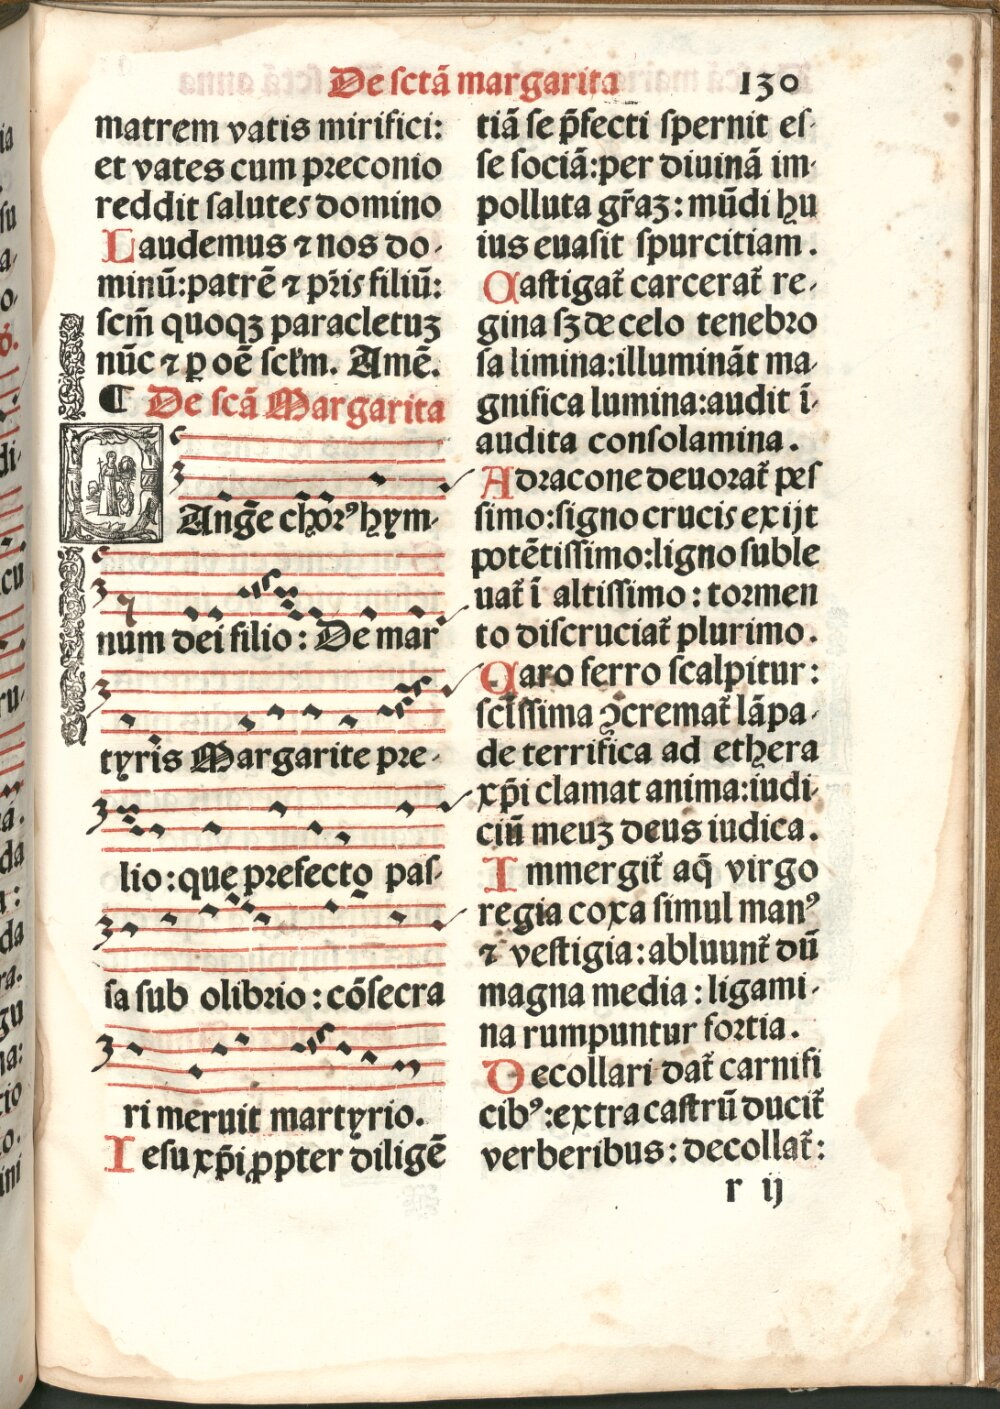 De sctā margarita 130
matrem vatis mirifici:
et vates cum preconio
reddit salutes domino
Laudemus ⁊ nos do-
minū:patrē ⁊ pr̄is filiū:
scm̄ quoqꝫ paracletuꝫ
nūc ⁊ ꝑ oē sclm̄. Amē.
¶ De scā Margarita
Angᷓe chorꝰ hym-
num dei filio: De mar
tyris Margarite pre-
lio:que prefecto pas-
sa sub olibrio:cōsecra
ri meruit martyrio.
Iesu xp̄i ꝓpter diligē
tiā se p̄fecti spernit es-
se sociā:per diuinā im-
polluta gr̄aꝫ:mūdi hu
ius euasit spurcitiam.
Castigat̄ carcerat̄ re-
gina sꝫ de celo tenebro
sa limina:illumināt ma-
gnifica lumina:audit ī-
audita consolamina.
A dracone deuorat̄ pes
simo:signo crucis exijt
potētissimo:ligno suble
uat̄ ī altissimo:tormen
to discruciat̄ plurimo.
Caro ferro scalpitur:
sctīssima ꝯcremat̄ lāpa-
de terrifica ad ethera
xp̄i clamat anima:iudi-
ciū meuꝫ deus iudica.
Immergit̄ aq̄ virgo
regia coxa simul manꝰ
⁊ vestigia:abluunt̄ dū
magna media:ligami-
na rumpuntur fortia.
Decollari dat̄ carnifi
cibꝰ:extra castrū ducit̄
verberibus:decollat̄:
r ij